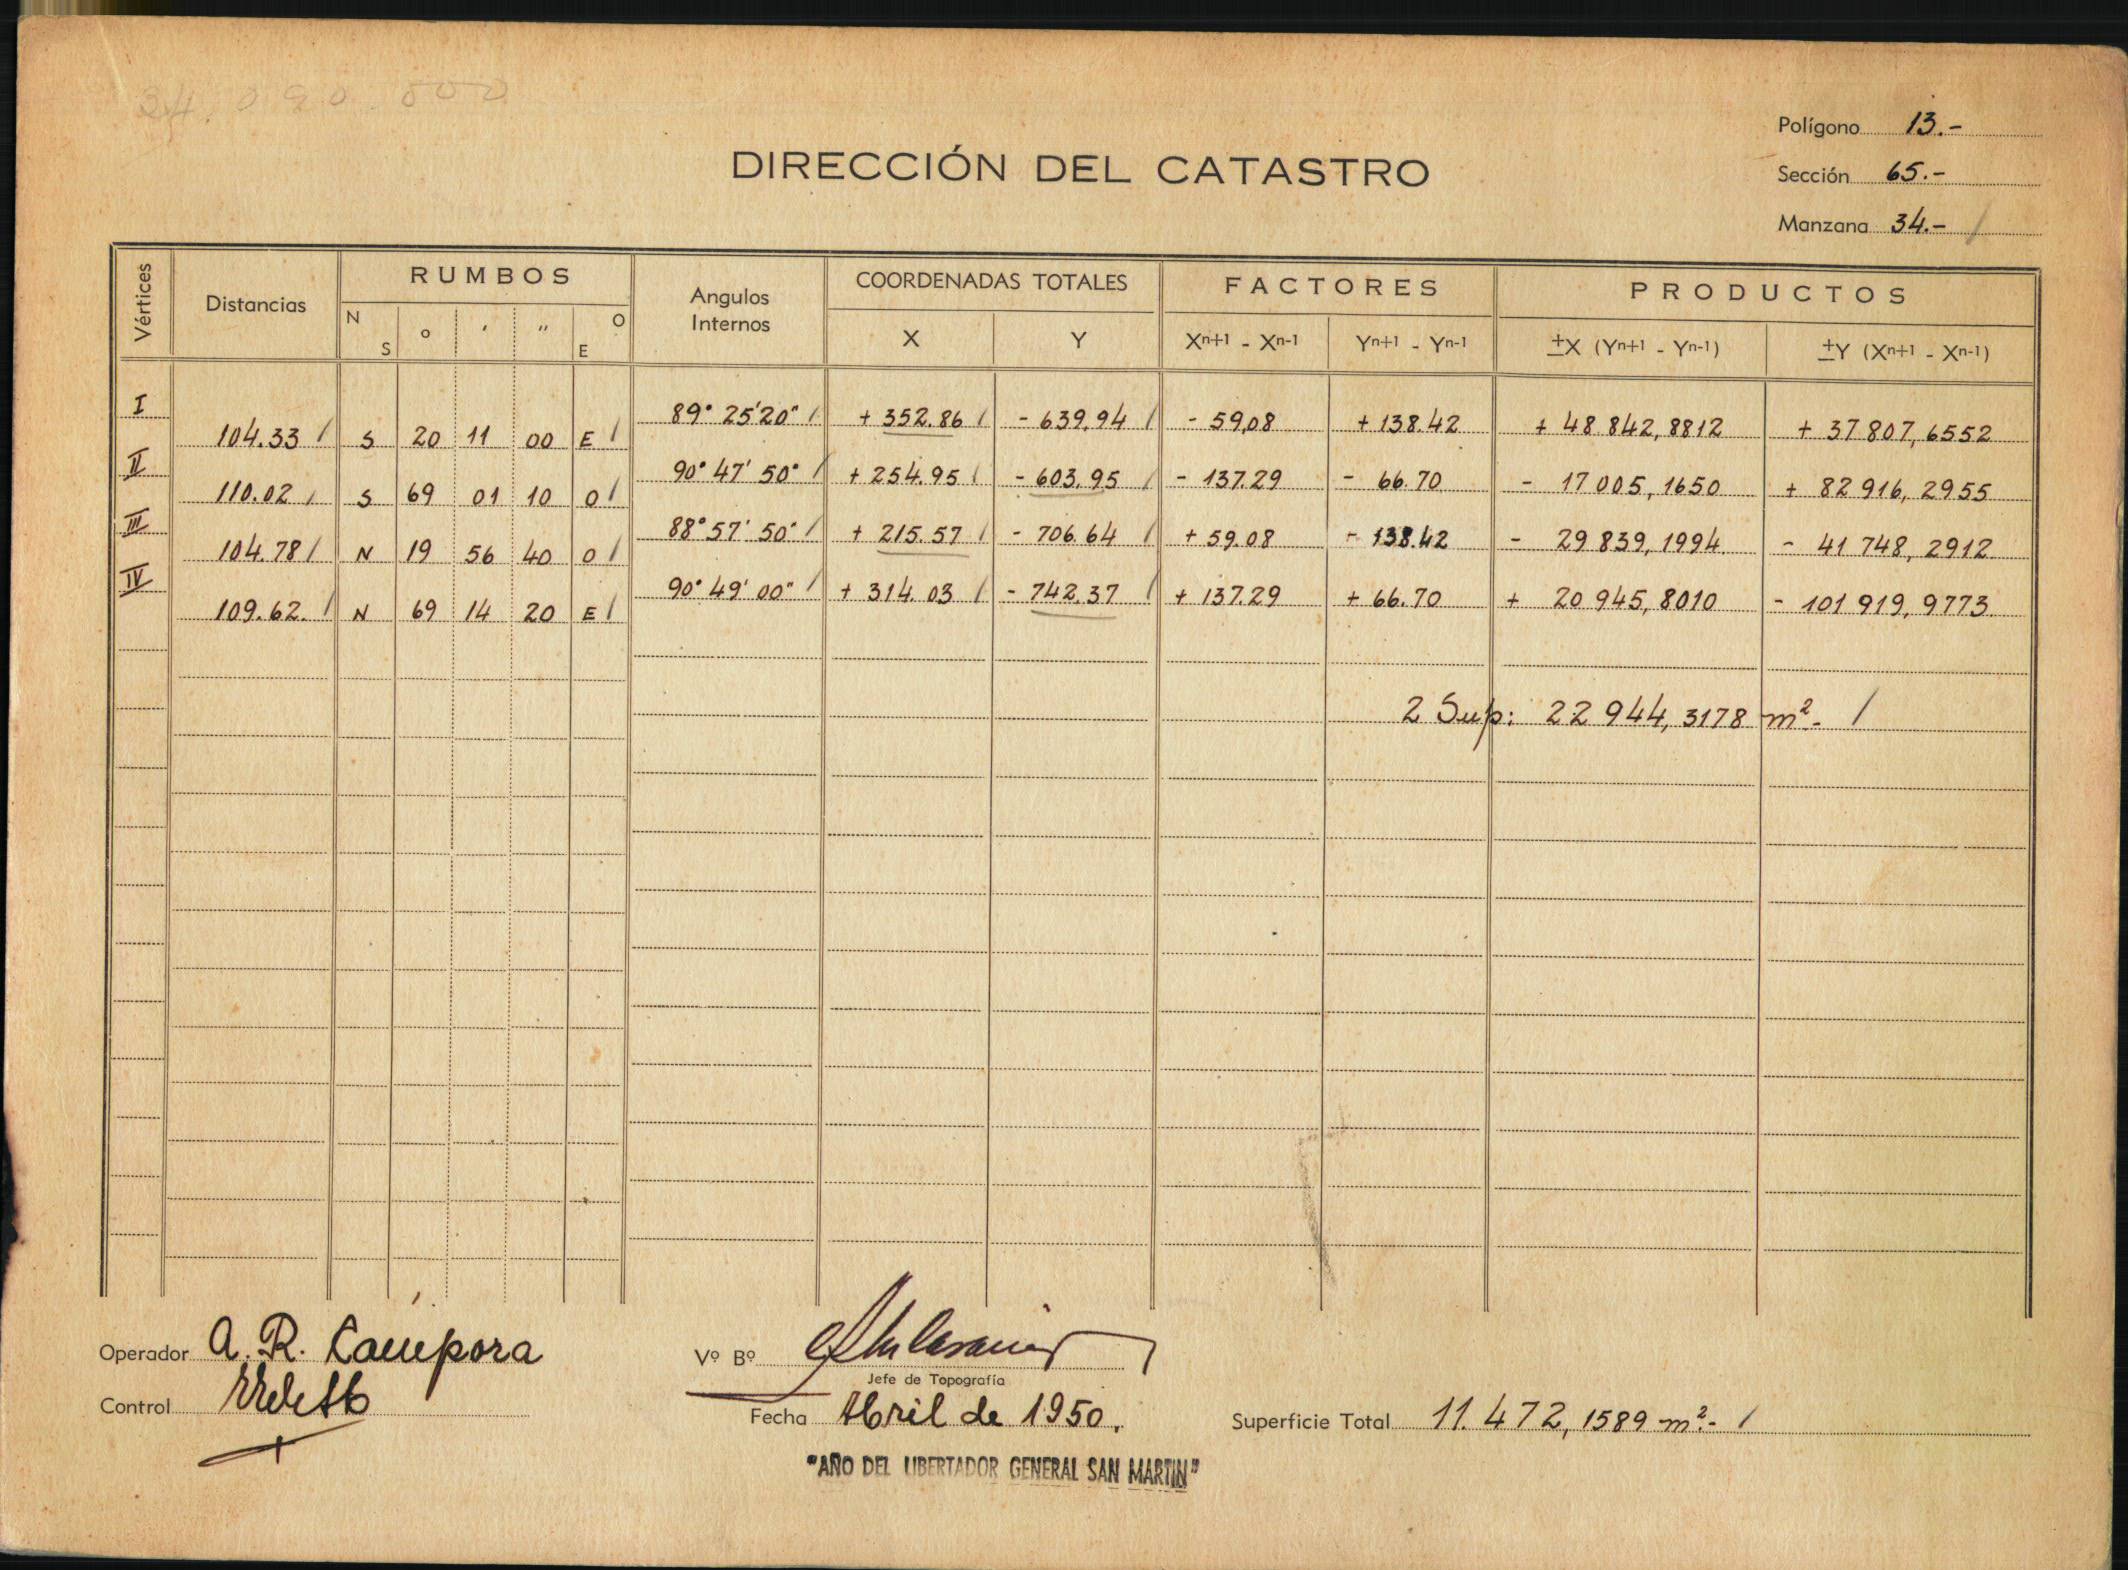 34.090.500
Polígono 13.-
DIRECCIÓN DEL CATASTRO
Sección 65.-
Manzana 34.- /
Vértices Distancias RUMBOS Angulos Internos COORDENADAS TOTALES FACTORES PRODUCTOS
N S ° ' " O E X Y Xn+1 - Xn-1 Yn+1 - Yn-1 ±X (Yn+1 - Yn-1) ±Y (Xn+1 - Xn-1)
I 89° 25' 20" / + 352.86 / - 639.94 / - 59,08 + 138.42 + 48 842,8812 + 37 807,6552
104.33 / S 20 11 00 E /
II 90° 47' 50" / + 254.95 / - 603.95 / - 137.29 - 66.70 - 17 005,1650 + 82 916,2955
110.02 / S 69 01 10 O /
III 88° 57' 50" / + 215.57 / - 706.64 / + 59.08 - 138.42 - 29 839,1994 - 41 748,2912
104.78 / N 19 56 40 O /
IV 90° 49' 00" / + 314.03 / - 742.37 / + 137.29 + 66.70 + 20 945,8010 - 101 919,9773
109.62. / N 69 14 20 E /
2 Sup: 22 944,3178 m².- /
Operador A. R. Cámpora
Vº Bº
Jefe de Topografía
Control
Fecha Abril de 1950.
Superficie Total 11.472,1589 m².- /
"AÑO DEL LIBERTADOR GENERAL SAN MARTIN"